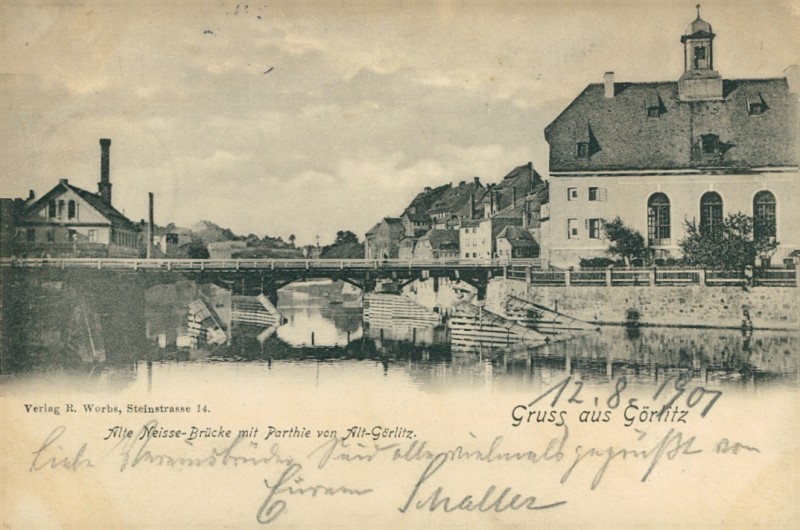 12. 8. 1901
Verlag R. Worbs, Steinstrasse 14.
Gruss aus Görlitz
Alte Neisse-Brücke mit Parthie von Alt-Görlitz.
Liebe Vereinsbrüder Seid alle vielmals gegrüßt von
Eurem Schaller